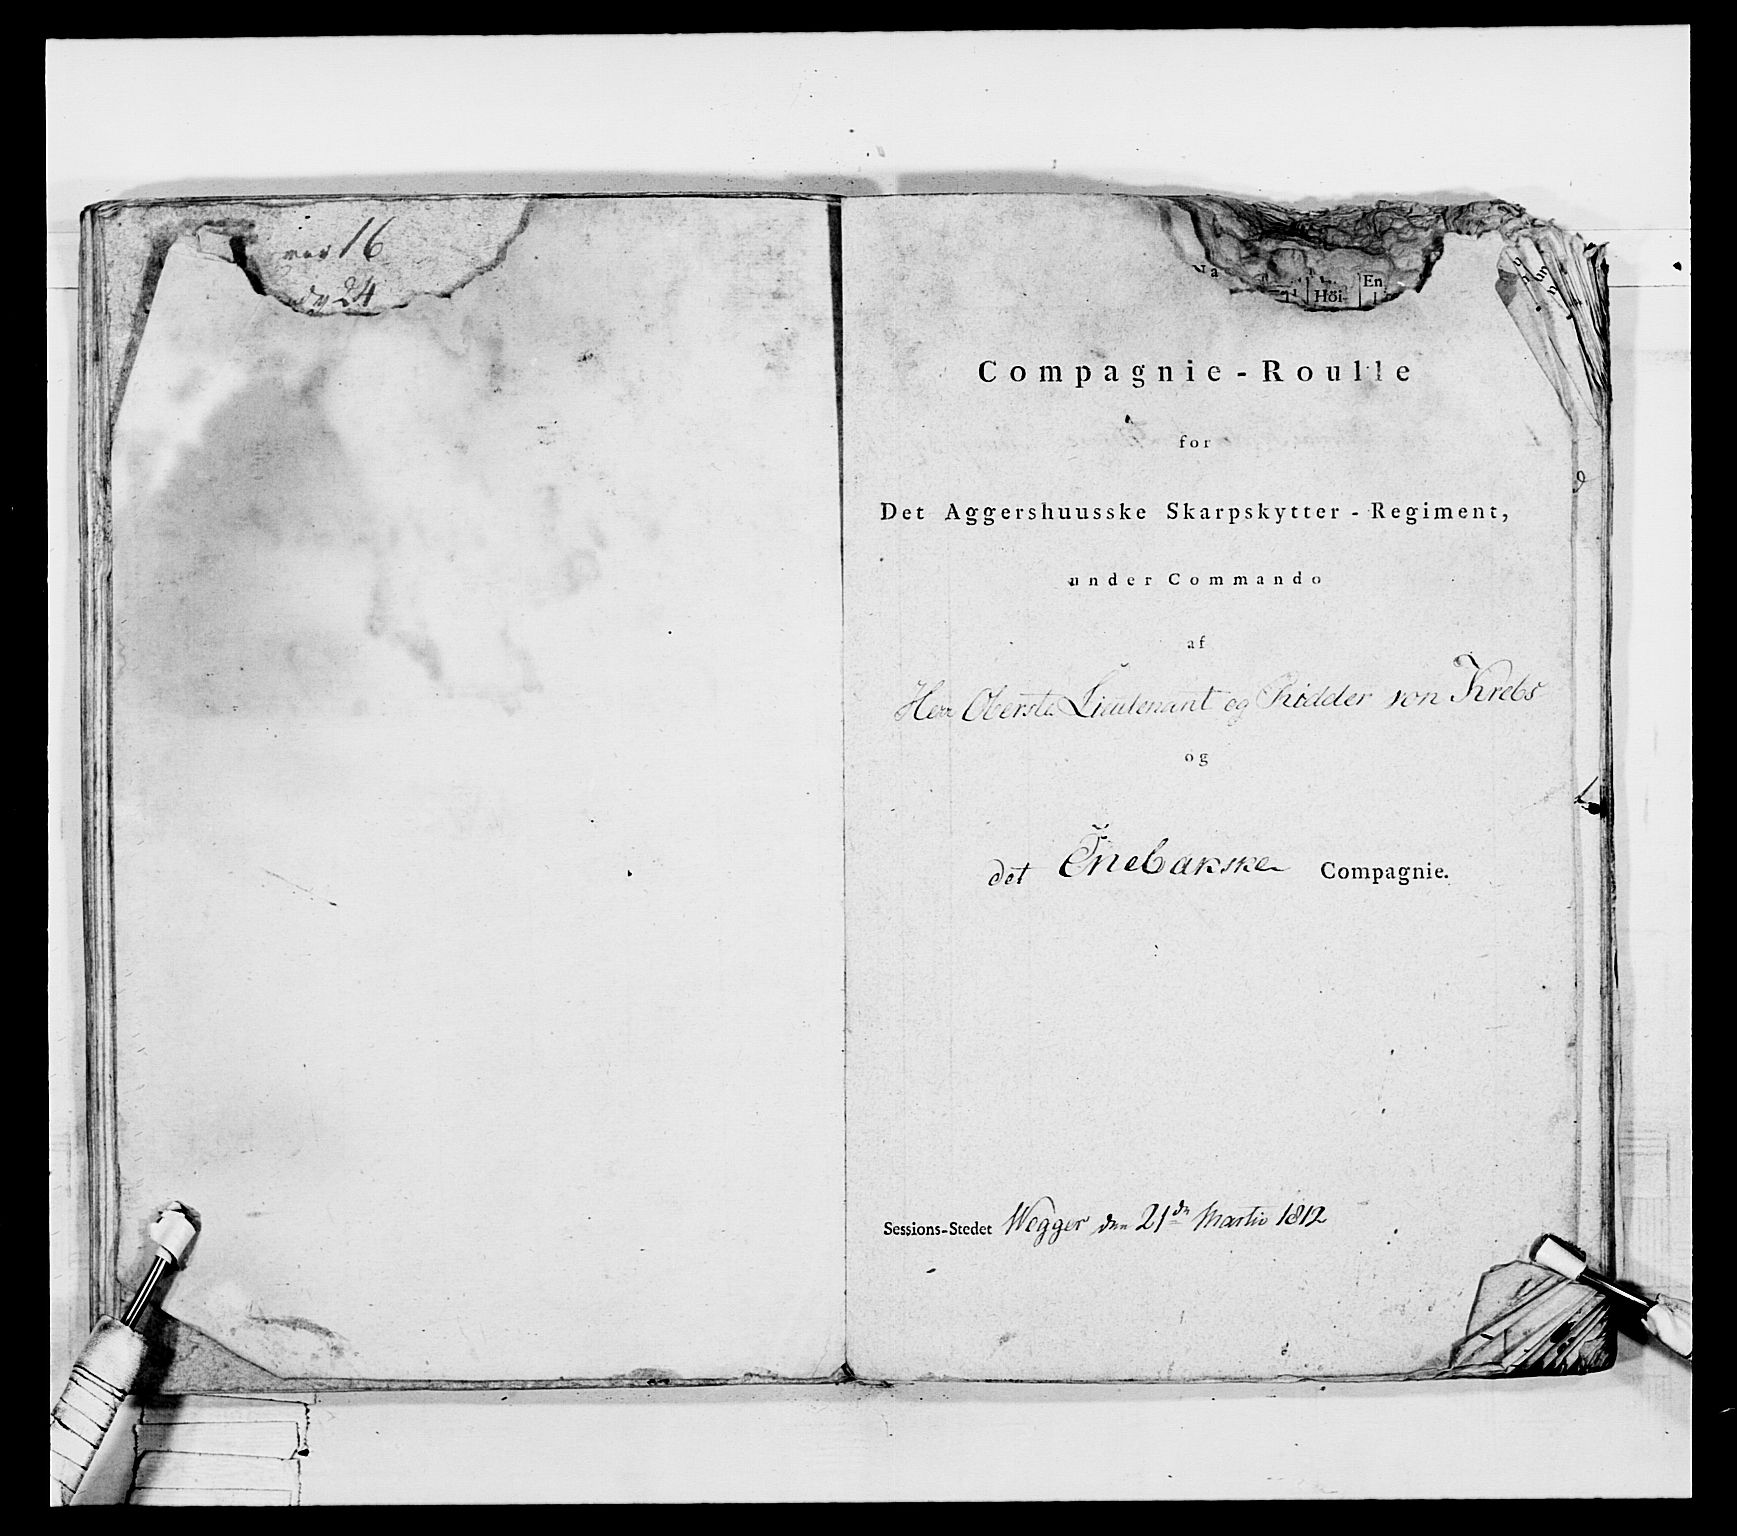 16
24
Höi-
En
Compagnie-Roulle
for
Det Aggershuusske Skarpskytter-Regiment,
under Commando
af
Herr Oberste Lieutenant og Ridder von Krebs
og
det Enebakske Compagnie.
Sessions-Stedet Wegger den 21de Martio 1812